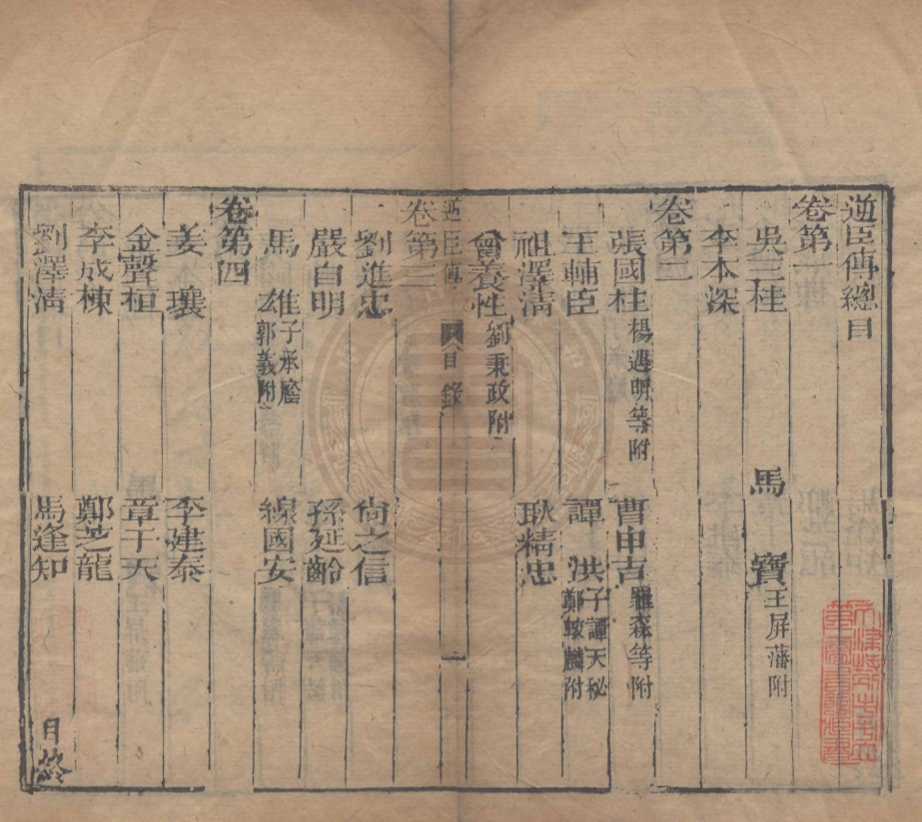 逆臣傳總目
卷第一
吳三桂 馬寶 王屏藩附
李本深
卷第二
張國柱 楊遇明等附 曹申吉 羅森等附
王輔臣 譚洪 子譚天秘 鄭蛟麟附
祖澤清 耿精忠
曾養性 劉秉政附
逆臣傳 目錄 一
卷第三
劉進忠 尚之信
嚴自明 孫延齡
馬雄 子承廕 郭義附 線國安
卷第四
姜瓖 李建泰
金聲桓 章于天
李成棟 鄭芝龍
劉澤清 馬逢知
目終